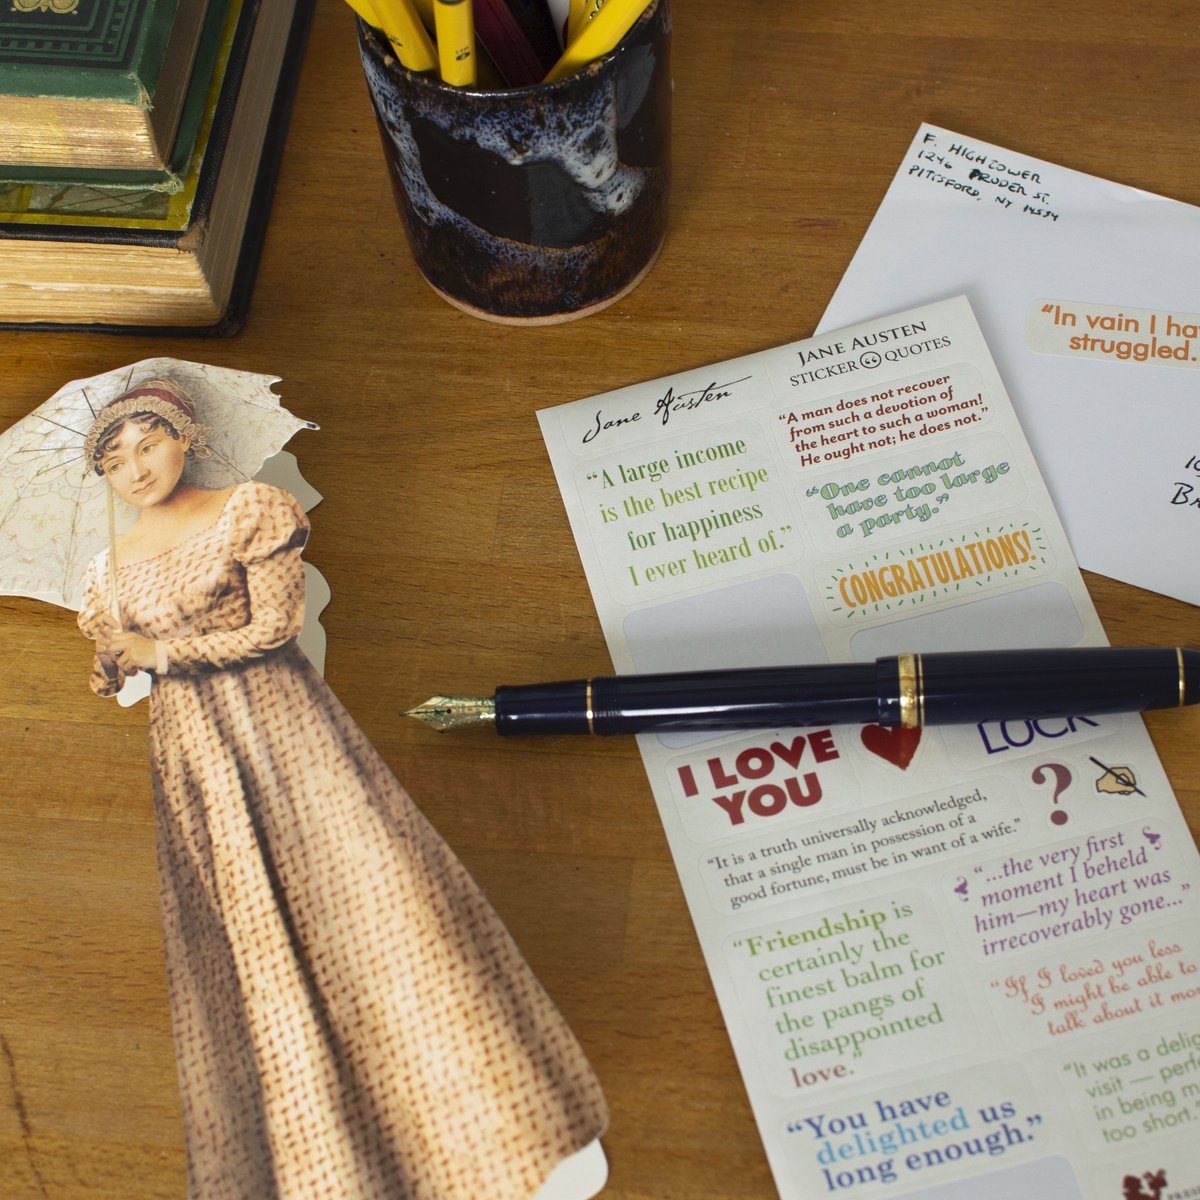 F. HIGHTOWER
1246 PRUDER ST.
PITTSFORD, NY 14534
"In vain I ha
struggled.
JANE AUSTEN
STICKER QUOTES
Jane Austen
"A large income
is the best recipe
for happiness
I ever heard of."
"A man does not recover
from such a devotion of
the heart to such a woman!
He ought not; he does not."
"One cannot
have too large
a party."
CONGRATULATIONS!
I LOVE
YOU
LUCK
?
"It is a truth universally acknowledged,
that a single man in possession of a
good fortune, must be in want of a wife."
"...the very first
moment I beheld
him—my heart was
irrecoverably gone..."
"Friendship is
certainly the
finest balm for
the pangs of
disappointed
love."
"If I loved you less
I might be able to
talk about it mor
"It was a delig
visit — perf
in being m
too short.
"You have
delighted us
long enough."